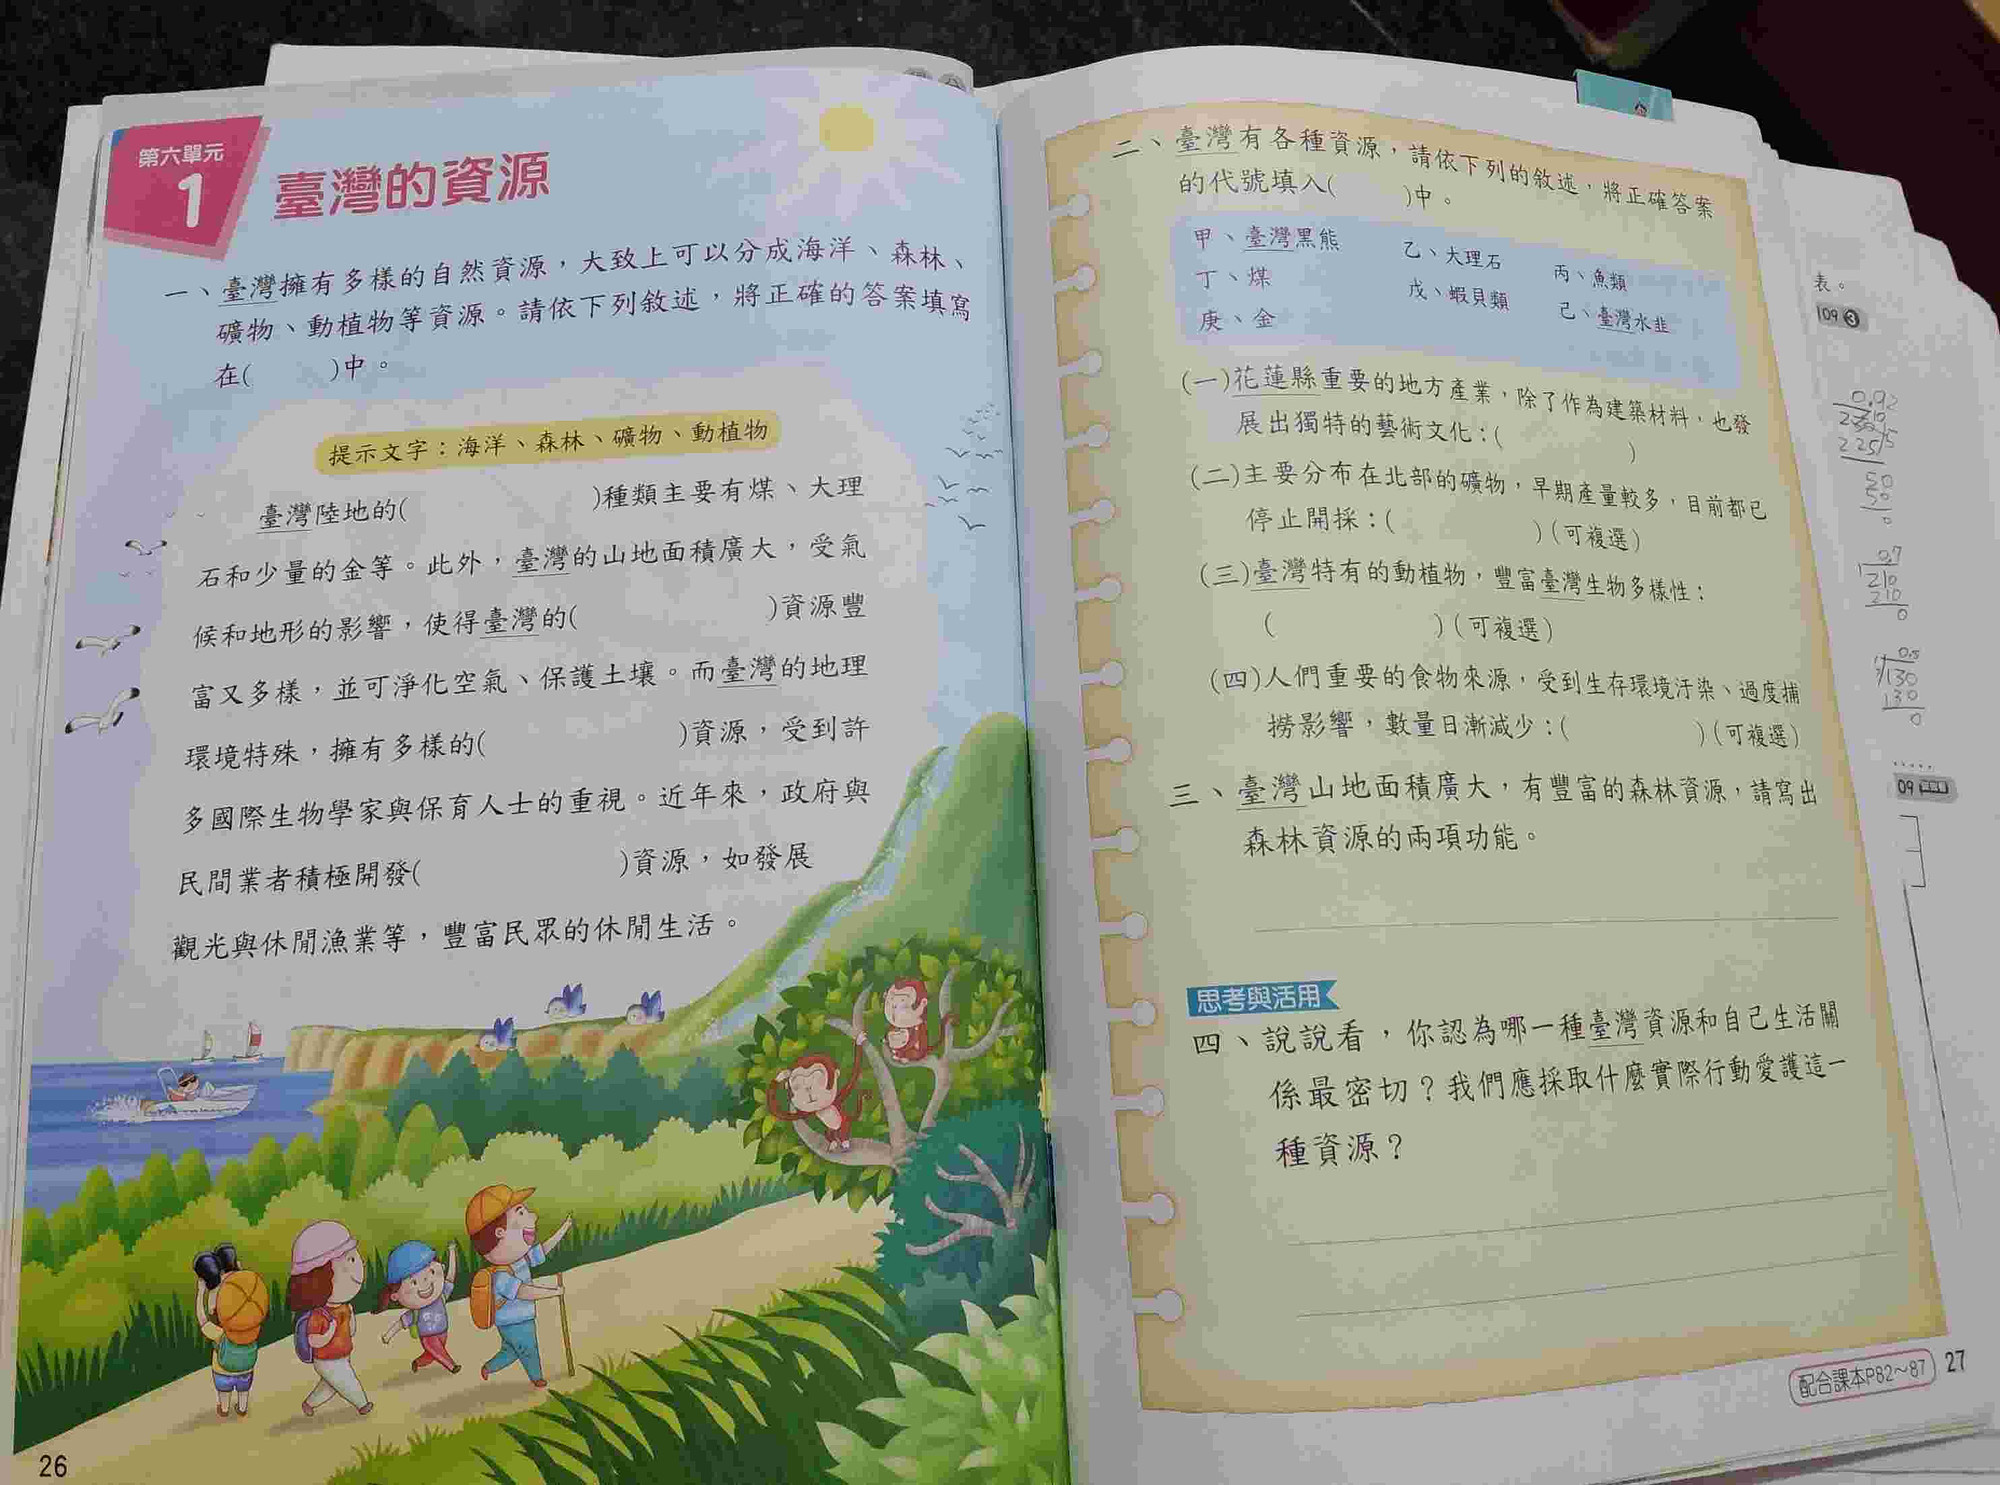 第六單元
1
臺灣的資源
一、臺灣擁有多樣的自然資源，大致上可以分成海洋、森林、
礦物、動植物等資源。請依下列敘述，將正確的答案填寫
在(　　)中。
提示文字：海洋、森林、礦物、動植物
臺灣陸地的(　　　　)種類主要有煤、大理
石和少量的金等。此外，臺灣的山地面積廣大，受氣
候和地形的影響，使得臺灣的(　　　　)資源豐
富又多樣，並可淨化空氣、保護土壤。而臺灣的地理
環境特殊，擁有多樣的(　　　　)資源，受到許
多國際生物學家與保育人士的重視。近年來，政府與
民間業者積極開發(　　　　)資源，如發展
觀光與休閒漁業等，豐富民眾的休閒生活。
26
二、臺灣有各種資源，請依下列的敘述，將正確答案
的代號填入(　　)中。
甲、臺灣黑熊　乙、大理石　丙、魚類
丁、煤　戊、蝦貝類　己、臺灣水韭
庚、金
(一)花蓮縣重要的地方產業，除了作為建築材料，也發
展出獨特的藝術文化：(　　　　)
(二)主要分布在北部的礦物，早期產量較多，目前都已
停止開採：(　　　　)(可複選)
(三)臺灣特有的動植物，豐富臺灣生物多樣性：
(　　　　)(可複選)
(四)人們重要的食物來源，受到生存環境汙染、過度捕
撈影響，數量日漸減少：(　　　　)(可複選)
三、臺灣山地面積廣大，有豐富的森林資源，請寫出
森林資源的兩項功能。
思考與活用
四、說說看，你認為哪一種臺灣資源和自己生活關
係最密切？我們應採取什麼實際行動愛護這一
種資源？
配合課本P82～87
27
表。
109 3
0.92
50
50
0
0.7
210
210
0
0.5
130
130
0
09